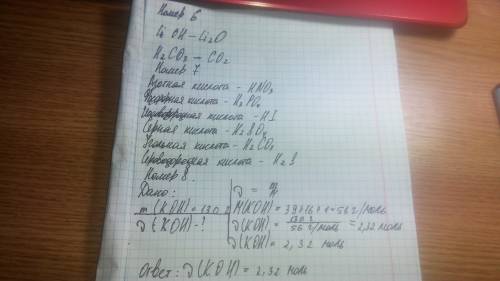 Номер 6
LiOH - Li2O
H2CO3 - CO2
Номер 7
Азотная кислота - HNO3
Фосфорная кислота - H3PO4
Иодоводородная кислота - HI
Серная кислота - H2SO4
Угольная кислота - H2CO3
Сероводородная кислота - H2S
Номер 8.
Дано:
m(KOH) = 130 г
ν(KOH) - ?
ν = m/M
M(KOH) = 39+16+1 = 56 г/моль
ν(KOH) = 130 г / 56 г/моль = 2,32 моль
ν(KOH) = 2,32 моль
Ответ: ν(KOH) = 2,32 моль